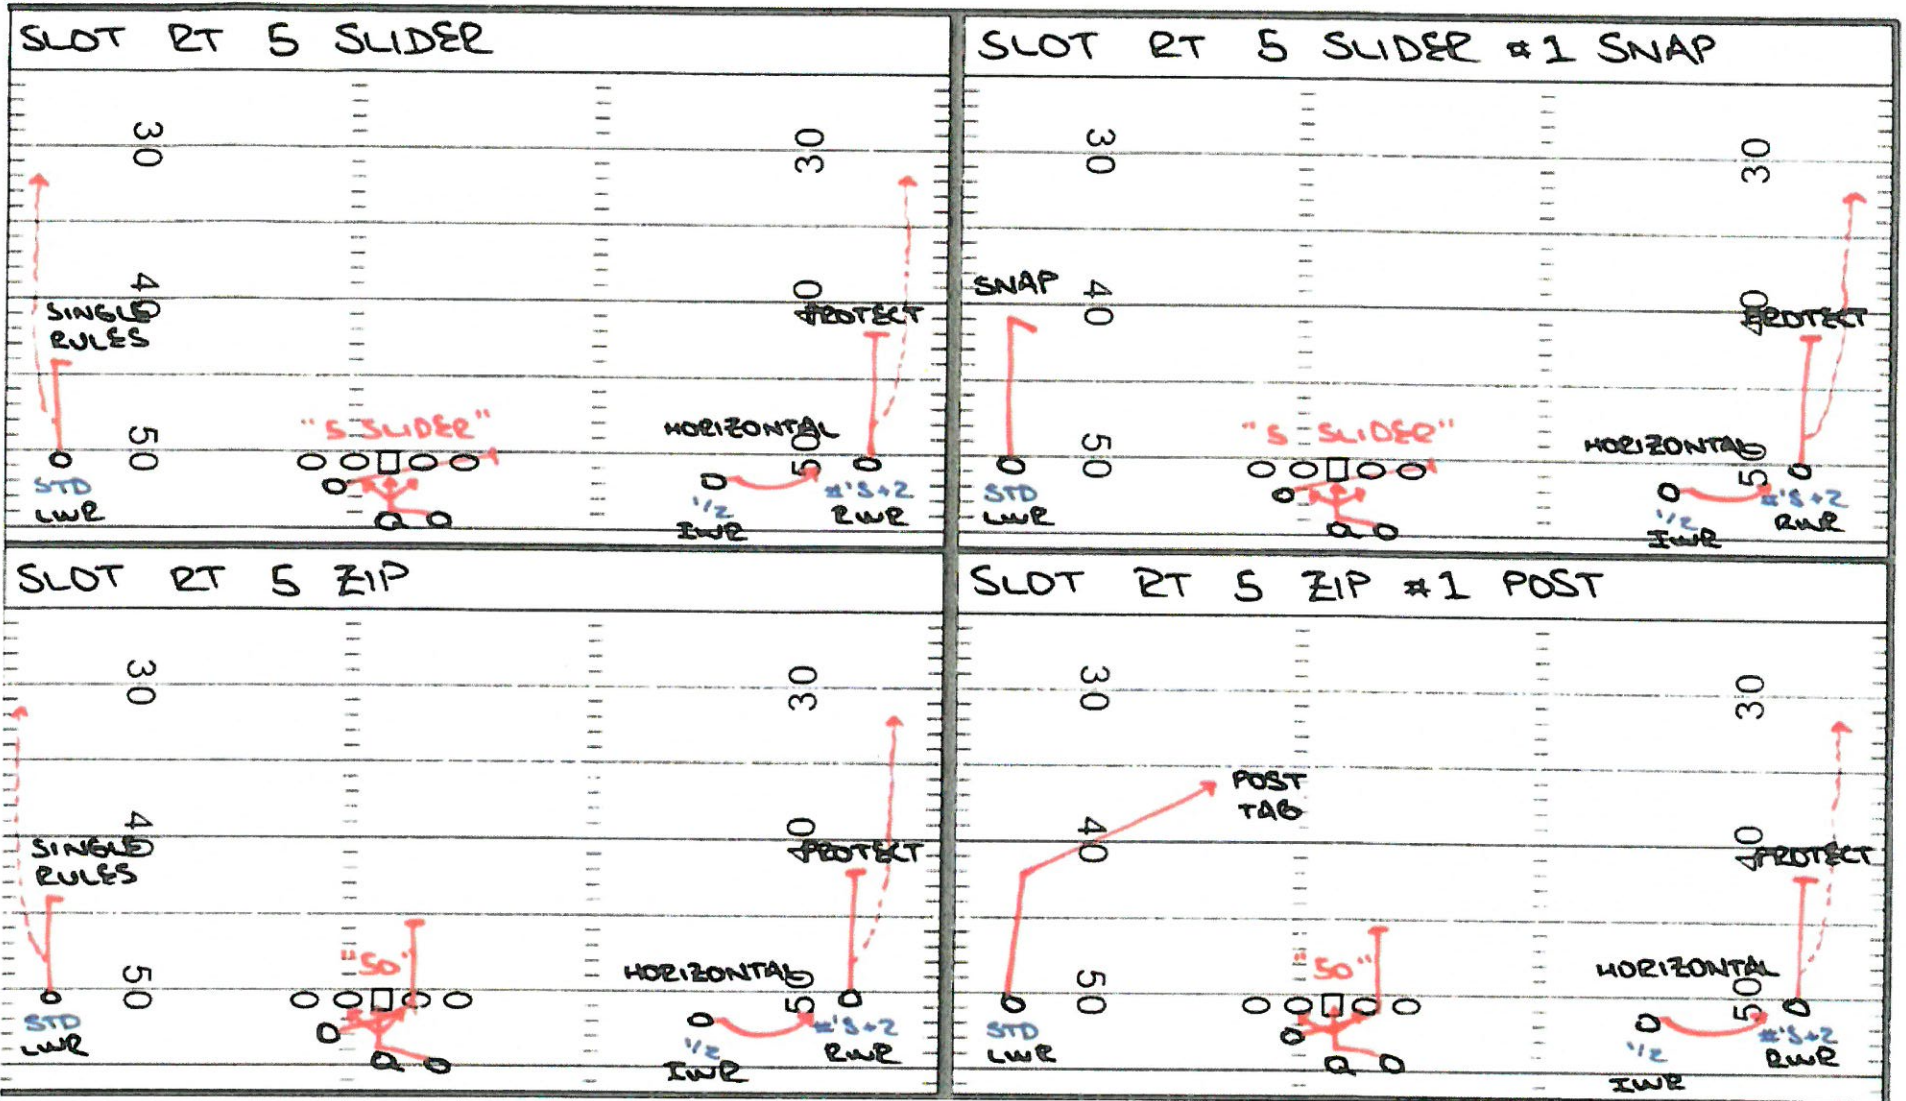 SLOT RT 5 SLIDER
30
30
40
40
SINGLE
RULES
PROTECT
"5 SLIDER"
HORIZONTAL
50
50
STD
LWR
1/2
IWR
#'S+2
RWR
SLOT RT 5 SLIDER #1 SNAP
30
30
SNAP
40
40
PROTECT
"5 SLIDER"
HORIZONTAL
50
50
STD
LWR
1/2
IWR
#'S+2
RWR
SLOT RT 5 ZIP
30
30
40
40
SINGLE
RULES
PROTECT
"50"
HORIZONTAL
50
50
STD
LWR
1/2
IWR
#'S+2
RWR
SLOT RT 5 ZIP #1 POST
30
30
POST
TAG
40
40
PROTECT
"50"
HORIZONTAL
50
50
STD
LWR
1/2
IWR
#'S+2
RWR